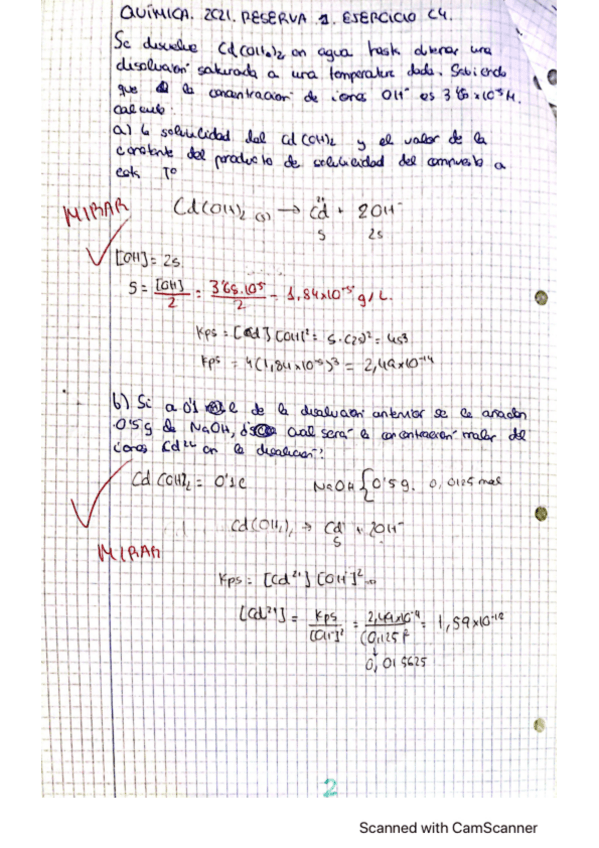 QUÍMICA. 2021. RESERVA 1. EJERCICIO C4.
Se disuelve Cd(OH)2 en agua hasta obtener una
disolución saturada a una temperatura dada. Sabiendo
que la concentración de iones OH⁻ es 3'65×10⁻⁵M.
calcule:
a) la solubilidad del Cd(OH)2 y el valor de la
constante del producto de solubilidad del compuesto a
esta Tº
MIRAR
Cd(OH)2 (s) → Cd²⁺ + 2OH⁻
S 2s
[OH]=2s.
S = [OH]/2 = 3'65.10⁵/2 = 1,84×10⁻⁵ g/L.
Kps = [Cd][OH]² = S·(2s)² = 4s³
Kps = 4(1,84×10⁻⁵)³ = 2,49×10⁻¹⁴
b) Si a 0'1 l de la disolución anterior se le añaden
0'5g de NaOH, cual será la concentración molar de
iones Cd²⁺ en la disolución?
Cd(OH)2 = 0'1l NaOH { 0'5g. 0,0125 mol
Cd(OH)2 → Cd + 2OH⁻
S
MIRAR
Kps = [Cd²⁺][OH⁻]²
[Cd²⁺] = Kps/[OH]² = 2,49×10⁻¹⁴/(0,125)² = 1,59×10⁻¹²
0,015625
2
Scanned with CamScanner